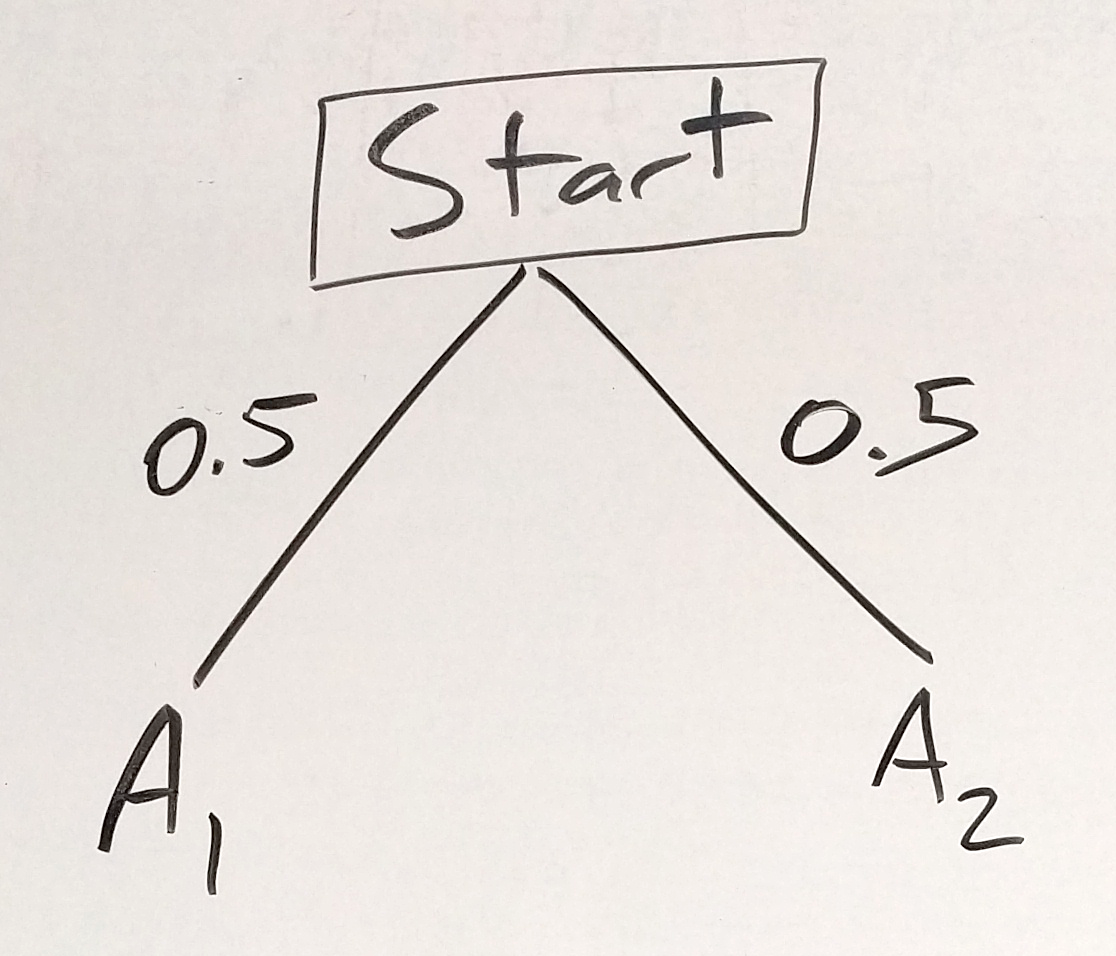 Start
0.5 0.5
A₁ A₂